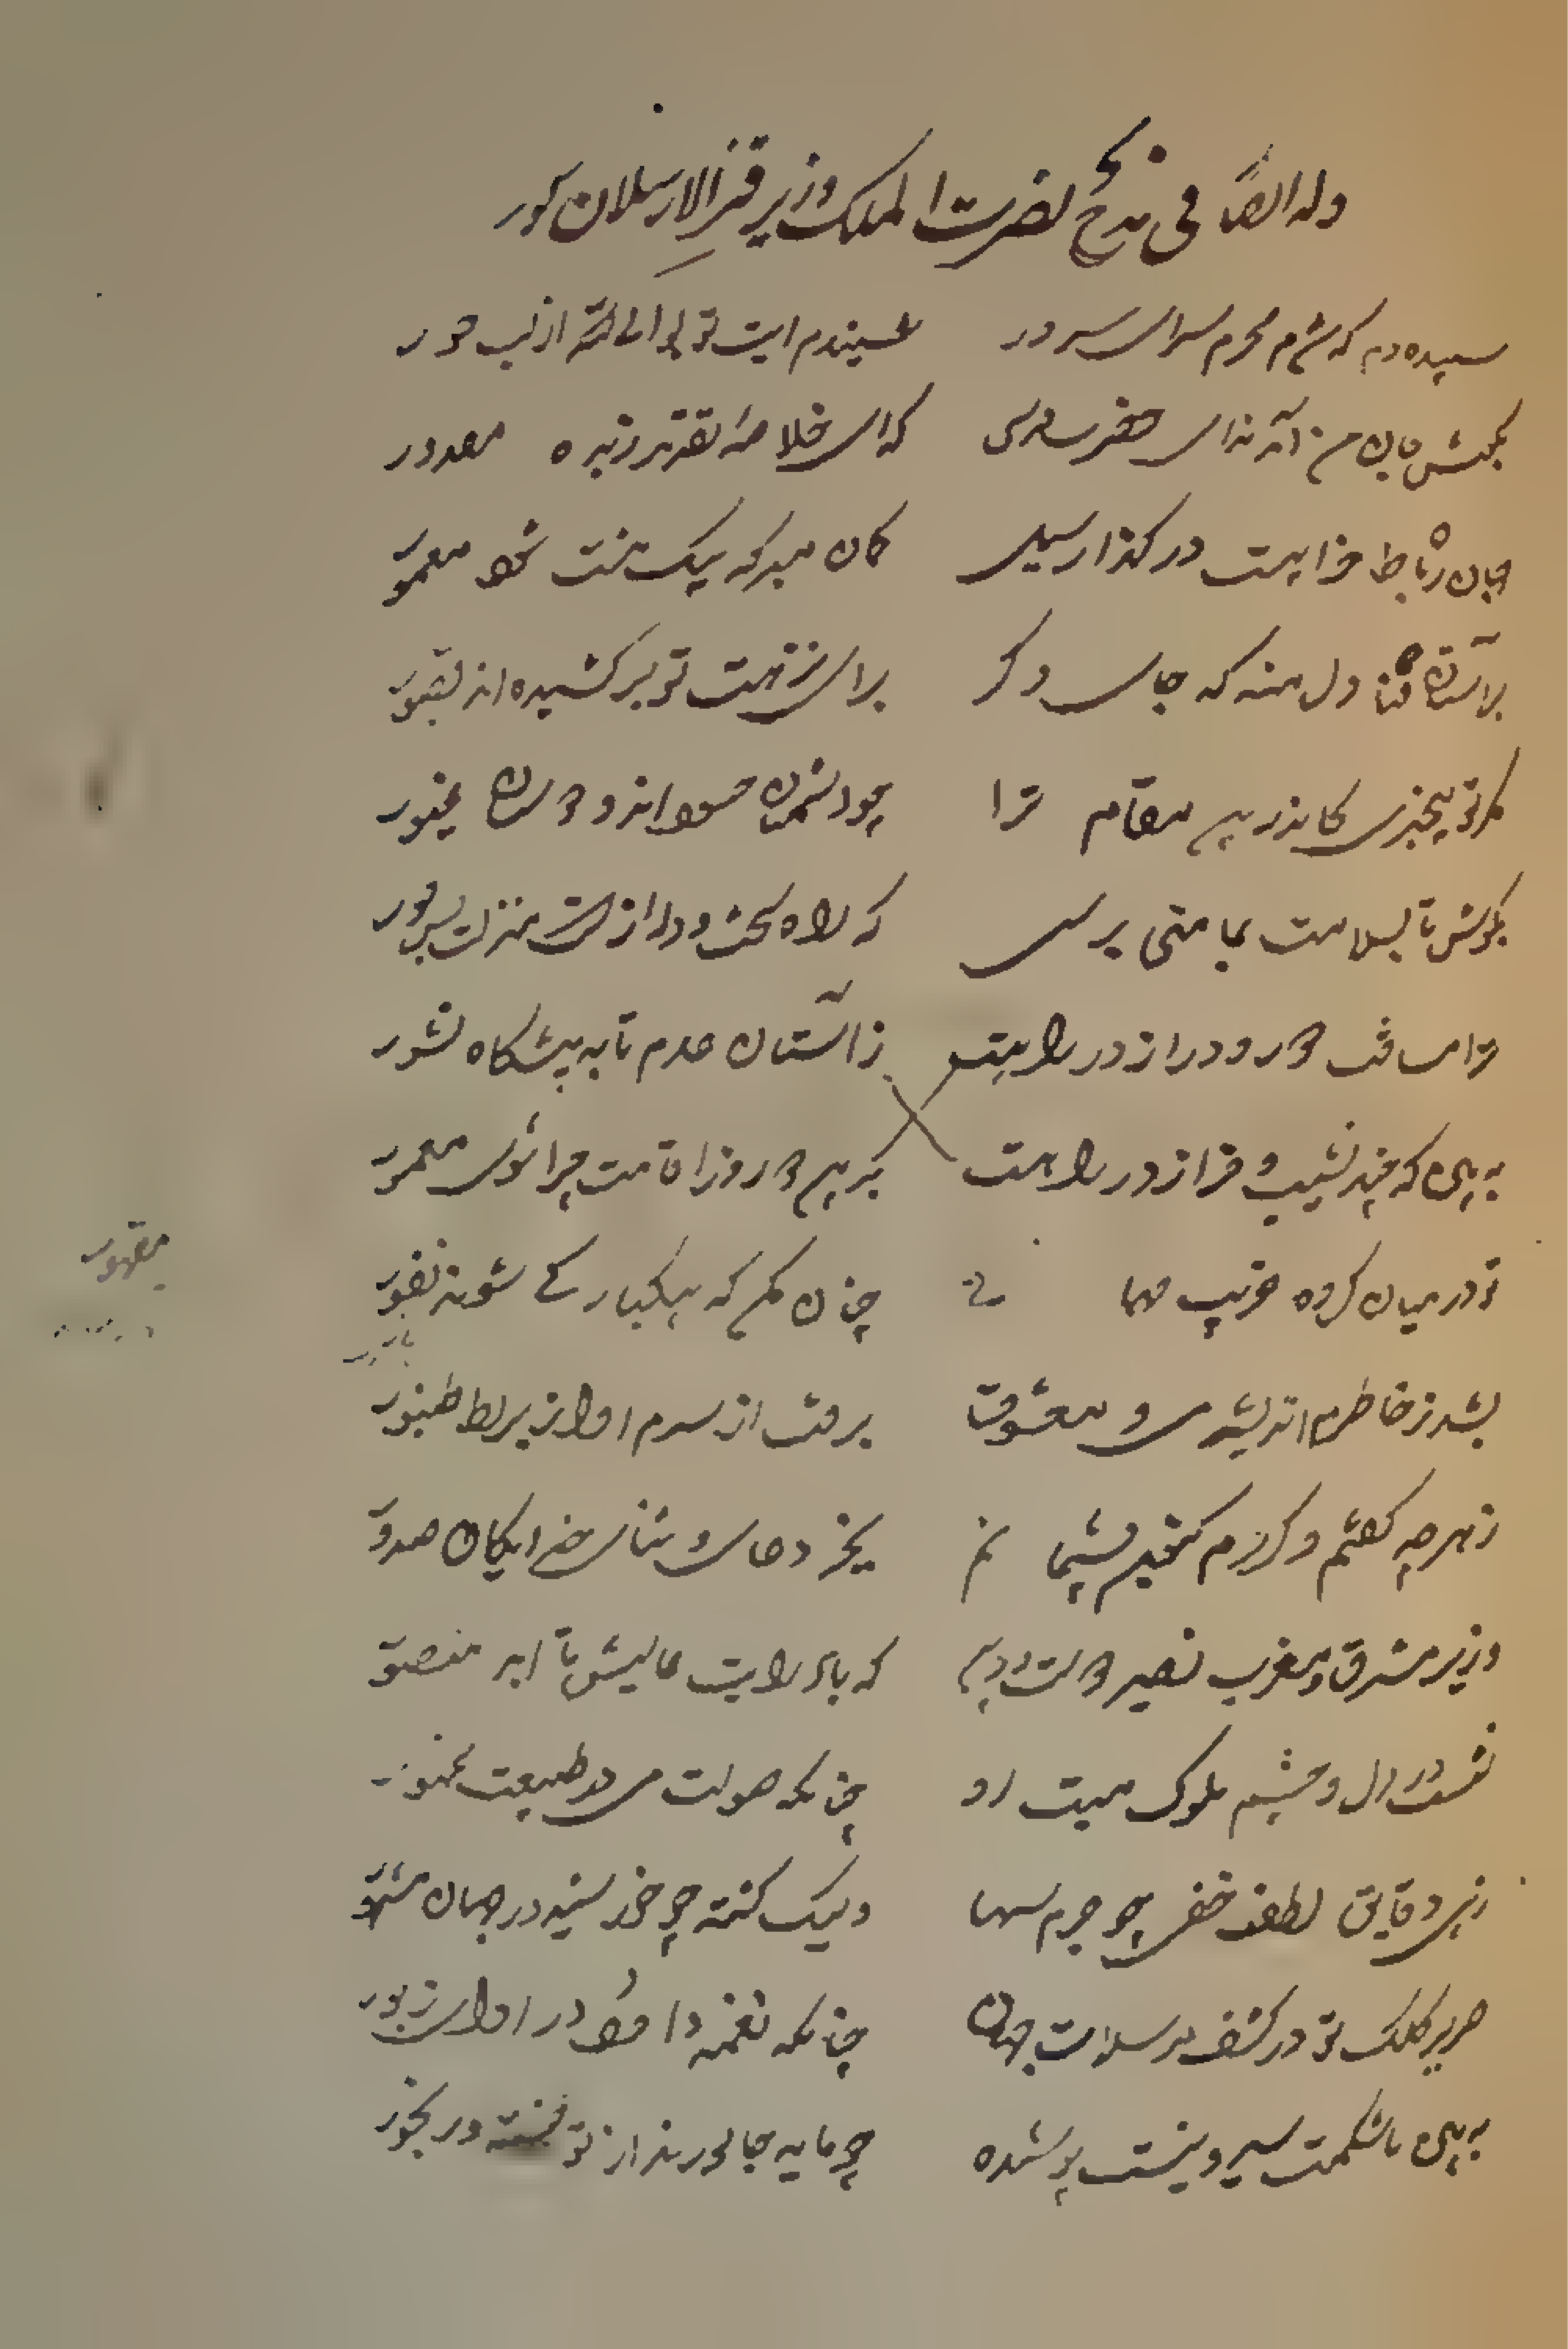 وله ایضاً فی مدح نصرت الملک وزیر قزل ارسلان
سپیده دم که شدم محرم سرای سرور شنیدم آیت توبوا الی الله از لب حور
بگوش جان من آمد ندای حضر قدس که ای خلاصه تقدیر و زبده مقدور
جهان رباط خرابست در گذار سیل گمان مبر که بیک مشت گل شود معمور
بر آستان فنا دل منه که جای دگر برای نزهت تو بر کشیده اند قصور
مگر تو بیخبری کاندرین مقام ترا چه دشمنان حسودند و دوستان غیور
بکوش تا بسلامت بمامنی برسی که راه سخت و دراز است منزلت بس دور
ترا مسافت دور و دراز در راهست ز آستان عدم تا به پیشگاه نشور
به بین که چند نشیب و فراز در راهست برین دو روز اقامت چرا شوی مغرور
تو در میان گروه غریب مهمانی چنان مکن که بیکبارگی شوند نفور
مقهور
بشد ز خاطرم اندیشه می و معشوق برفت از سرم آواز بربط و طنبور
ز هر چه گفتم و کردم کنون پشیمانم بجز دعای و ثنای خدایگان صدور
وزیر مشرق و مغرب نصیر دولت و دین که باد رایت عالیش تا ابد منصور
نشسته در دل و چشم ملوک هیبت او چنانکه صولت می در طبیعت مخمور
زهی دقایق لطفت خفی چو جرم سها ولیک گشته چو خورشید در جهان مشهور
صریر کلک تو در کشف مشکلات جهان چنانکه نغمه داود در ادای زبور
به بین ز شکمت سیر و نیست پوشده چه مایه جانورند از تو خسته و رنجور